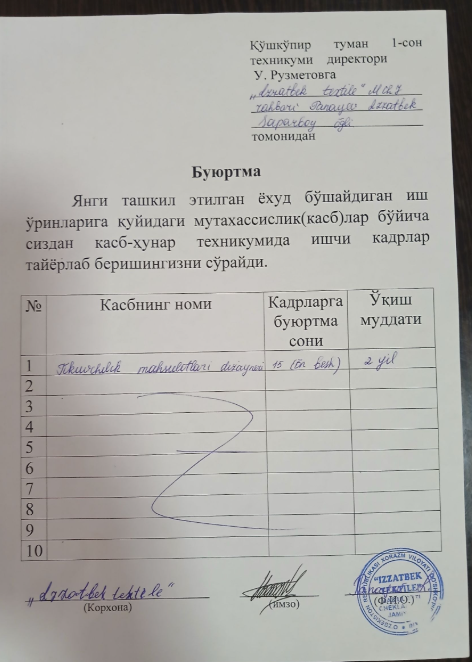 Қўшкўпир туман 1-сон
техникуми директори
У. Рузметовга
„Izzatbek textile" MCHJ
rahbari Izzatbek
Saparboy õgli
томонидан
Буюртма
Янги ташкил этилган ёхуд бўшайдиган иш
ўринларига қуйидаги мутахассислик(касб)лар бўйича
сиздан касб-ҳунар техникумида ишчи кадрлар
тайёрлаб беришингизни сўрайди.
№ Касбнинг номи Кадрларга буюртма сони Ўқиш муддати
1 Tikuvchilik mahsulotlari dizayneri 15 (On besh) 2 yil
2
3
4
5
6
7
8
9
10
„Izzatbek textile"
(Корхона) (имзо) (Ф.И.О.)
"IZZATBEK
TEXTILE"